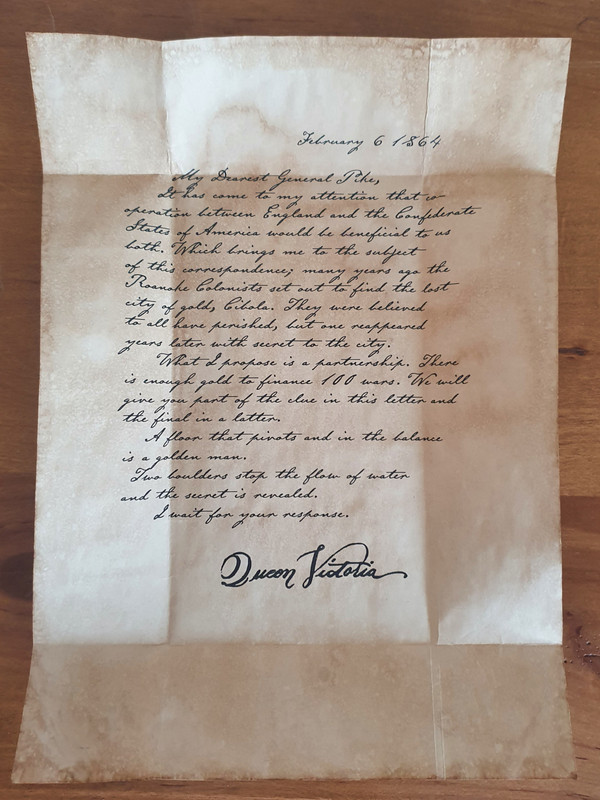 February 6 1864
My Dearest General Pike,
It has come to my attention that co-
operation between England and the Confederate
States of America would be beneficial to us
both. Which brings me to the subject
of this correspondence; many years ago the
Roanoke Colonists set out to find the lost
city of gold, Cibola. They were believed
to all have perished, but one reappeared
years later with secret to the city.
What I propose is a partnership. There
is enough gold to finance 100 wars. We will
give you part of the clue in this letter and
the final in a latter.
A floor that pivots and in the balance
is a golden man.
Two boulders stop the flow of water
and the secret is revealed.
I wait for your response.
Queen Victoria